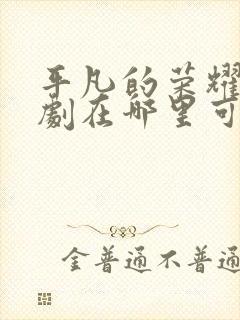 平凡的荣耀
劇在哪里可
金普通不普通